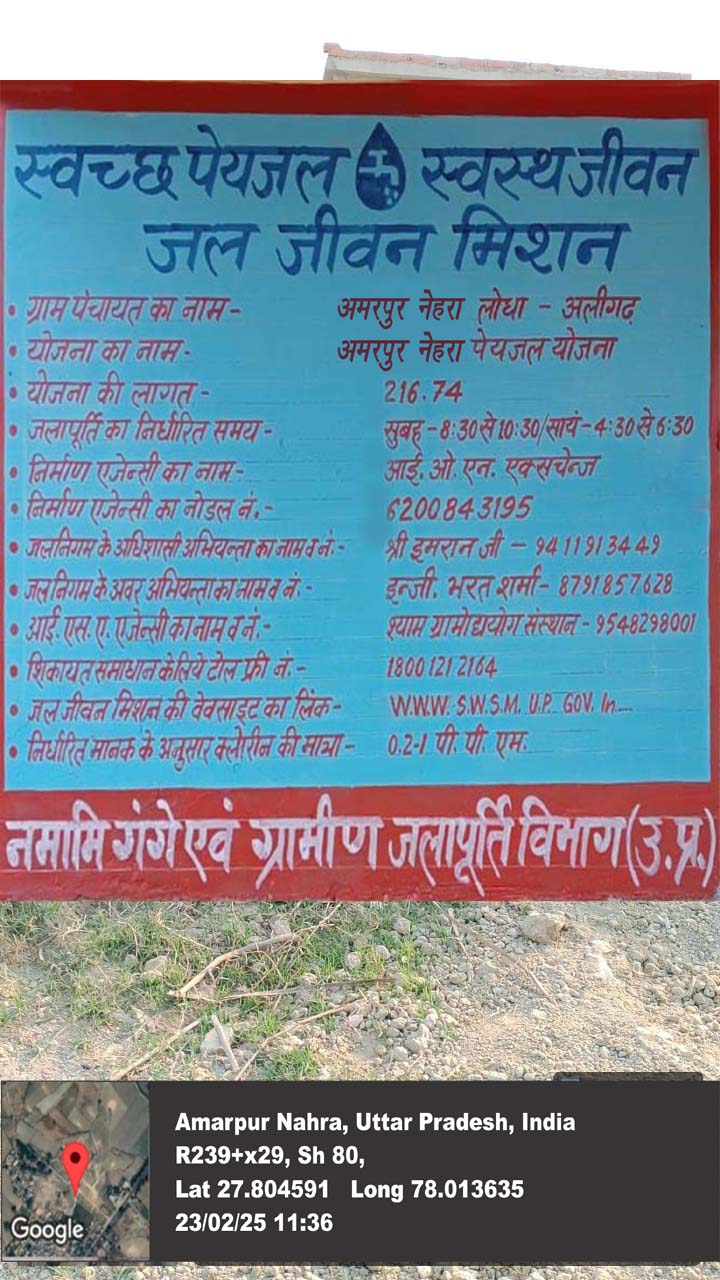 स्वच्छ पेयजल स्वस्थ जीवन
जल जीवन मिशन
• ग्राम पंचायत का नाम - अमरपुर नेहरा लोधा - अलीगढ़
• योजना का नाम - अमरपुर नेहरा पेयजल योजना
• योजना की लागत - 216.74
• जलापूर्ति का निर्धारित समय - सुबह - 8:30 से 10:30/सायं - 4:30 से 6:30
• निर्माण एजेन्सी का नाम - आई. ओ. एन. एक्सचेन्ज
• निर्माण एजेन्सी का नोडल नं. - 6200843195
• जलनिगम के अधिशासी अभियन्ता का नाम व नं. - श्री इमरान जी - 9411913449
• जलनिगम के अवर अभियन्ता का नाम व नं. - इन्जी. भरत शर्मा - 8791857628
• आई. एस. ए. एजेन्सी का नाम व नं. - श्याम ग्रामोद्ययोग संस्थान - 9548298001
• शिकायत समाधान के लिये टोल फ्री नं. - 1800 121 2164
• जल जीवन मिशन की वेवसाइट का लिंक - W.W.W. S.W.S.M. U.P. GOV. In....
• निर्धारित मानक के अनुसार क्लोरीन की मात्रा - 0.2-1 पी. पी. एम.
नमामि गंगे एवं ग्रामीण जलापूर्ति विभाग (उ.प्र.)
Amarpur Nahra, Uttar Pradesh, India
R239+x29, Sh 80,
Lat 27.804591 Long 78.013635
23/02/25 11:36
Google